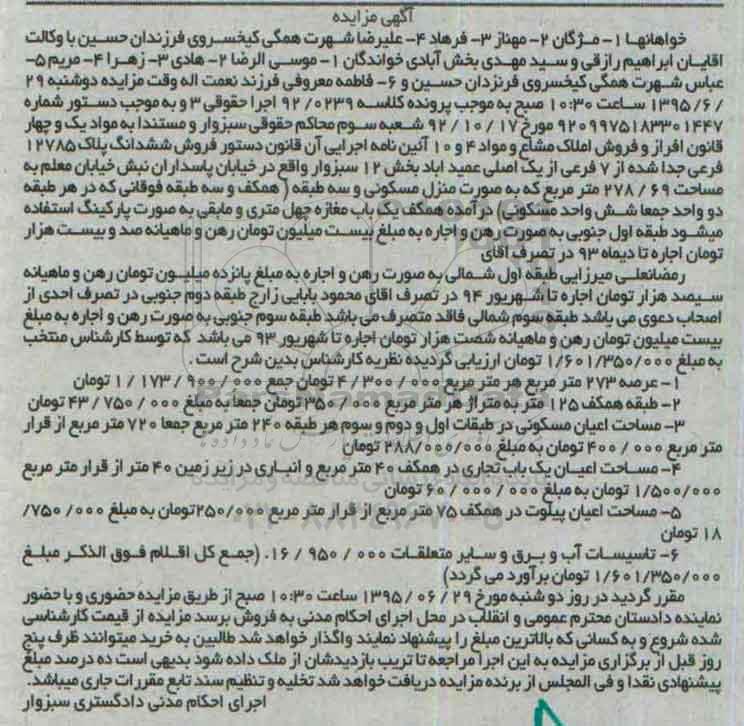 آگهی مزایده
خواهانها ۱- مـژگان ۲- مهناز ۳- فرهاد ۴- علیرضا شهرت همگی کیخسـروی فرزندان حسین با وکالت
اقایـان ابراهیم رازقی و سـید مهـدی بخش آبادی خواندگان ۱- موسـی الرضا ۲- هادی ۳- زهـرا ۴- مریم ۵-
عباس شهرت همگی کیخسروی فرزندان حسین و ۶- فاطمه معروفی فرزند نعمت اله وقت مزایده دوشنبه ۲۹
/ ۶ / ۱۳۹۵ ساعت ۱۰:۳۰ صبح به موجب پرونده کلاسه ۹۲/۰۲۳۹ اجرا حقوقی ۳ و به موجب دستور شماره
۹۲۰۹۹۷۵۱۸۳۳۰۱۴۴۷ مورخ ۱۷ / ۱۰ / ۹۲ شـعبه سـوم محاکم حقوقی سبزوار و مستندا به مواد یک و چهار
قانون افراز و فروش املاک مشاع و مواد ۴ و ۱۰ آئین نامه اجرایی آن قانون دستور فروش ششدانگ پلاک ۱۲۷۸۵
فرعی جدا شده از ۷ فرعی از یک اصلی عمید اباد بخش ۱۲ سبزوار واقع در خیابان پاسداران نبش خیابان معلم به
مساحت ۶۹ / ۲۷۸ متر مربع که به صورت منزل مسکونی و سه طبقه ( همکف و سه طبقه فوقانی که در هر طبقه
دو واحد جمعا شـش واحد مسـکونی) در آمده همکف یک باب مغازه چهل متری و مابقی به صورت پارکینگ استفاده
میشـود طبقه اول جنوبی به صورت رهن و اجاره به مبلغ بیسـت میلیون تومان رهن و ماهیانه صد و بیسـت هزار
تومان اجاره تا دیماه ۹۳ در تصرف آقای
رمضانعلـی میرزایی طبقه اول شـمالی به صورت رهن و اجاره به مبلغ پانزده میلیـون تومان رهن و ماهیانه
سـیصد هزار تومان اجاره تا شـهریور ۹۴ در تصرف اقای محمود بابایی زارج طبقه دوم جنوبی در تصرف احدی از
اصحاب دعوی می باشد طبقه سوم شمالی فاقد متصرف می باشد طبقه سوم جنوبی به صورت رهن و اجاره به مبلغ
بیست میلیون تومان رهن و ماهیانه شصت هزار تومان اجاره تا شهریور ۹۳ می باشد که توسط کارشناس منتخب
به مبلغ ۱/۶۰۱/۳۵۰/۰۰۰ تومان ارزیابی گردیده نظریه کارشناس بدین شرح است .
۱- عرصه ۲۷۳ متر مربع هر متر مربع ۰۰۰ / ۳۰۰ / ۴ تومان جمع ۰۰۰ / ۹۰۰ / ۱۷۳ / ۱ تومان
۲- طبقه همکف ۱۲۵ متر به متراژ هر متر مربع ۰۰۰ / ۳۵۰ تومان جمعا به مبلغ ۰۰۰ / ۷۵۰ / ۴۳ تومان
۳- مساحت اعیان مسکونی در طبقات اول و دوم و سوم هر طبقه ۲۴۰ متر مربع جمعا ۷۲۰ متر مربع از قرار
متر مربع ۰۰۰ / ۴۰۰ تومان به مبلغ ۲۸۸/۰۰۰/۰۰۰ تومان
۴- مسـاحت اعیـان یک باب تجاری در همکف ۴۰ متر مربع و انبـاری در زیر زمین ۴۰ متر از قرار متر مربع
۱/۵۰۰/۰۰۰ تومان به مبلغ ۰۰۰ / ۰۰۰ / ۶۰ تومان
۵- مساحت اعیان پیلوت در همکف ۷۵ متر مربع از قرار متر مربع ۲۵۰/۰۰۰تومان به مبلغ ۷۵۰/۰۰۰/
۱۸ تومان
۶- تاسیسـات آب و بـرق و سـایر متعلقـات ۰۰۰ / ۹۵۰ / ۱۶. (جمـع کل اقـلام فـوق الذکـر مبلـغ
۱/۶۰۱/۳۵۰/۰۰۰ تومان برآورد می گردد)
مقرر گردید در روز دو شنبه مورخ ۲۹ / ۰۶ / ۱۳۹۵ ساعت ۱۰:۳۰ صبح از طریق مزایده حضوری و با حضور
نماینده دادستان محترم عمومی و انقلاب در محل اجرای احکام مدنی به فروش برسد مزایده از قیمت کارشناسی
شده شروع و به کسانی که بالاترین مبلغ را پیشنهاد نمایند واگذار خواهد شد طالبین به خرید میتوانند ظرف پنج
روز قبل از برگزاری مزایده به این اجرا مراجعه تا تریب بازدیدشان از ملک داده شود بدیهی است ده درصد مبلغ
پیشنهادی نقدا و فی المجلس از برنده مزایده دریافت خواهد شد تخلیه و تنظیم سند تابع مقررات جاری میباشد.
اجرای احکام مدنی دادگستری سبزوار